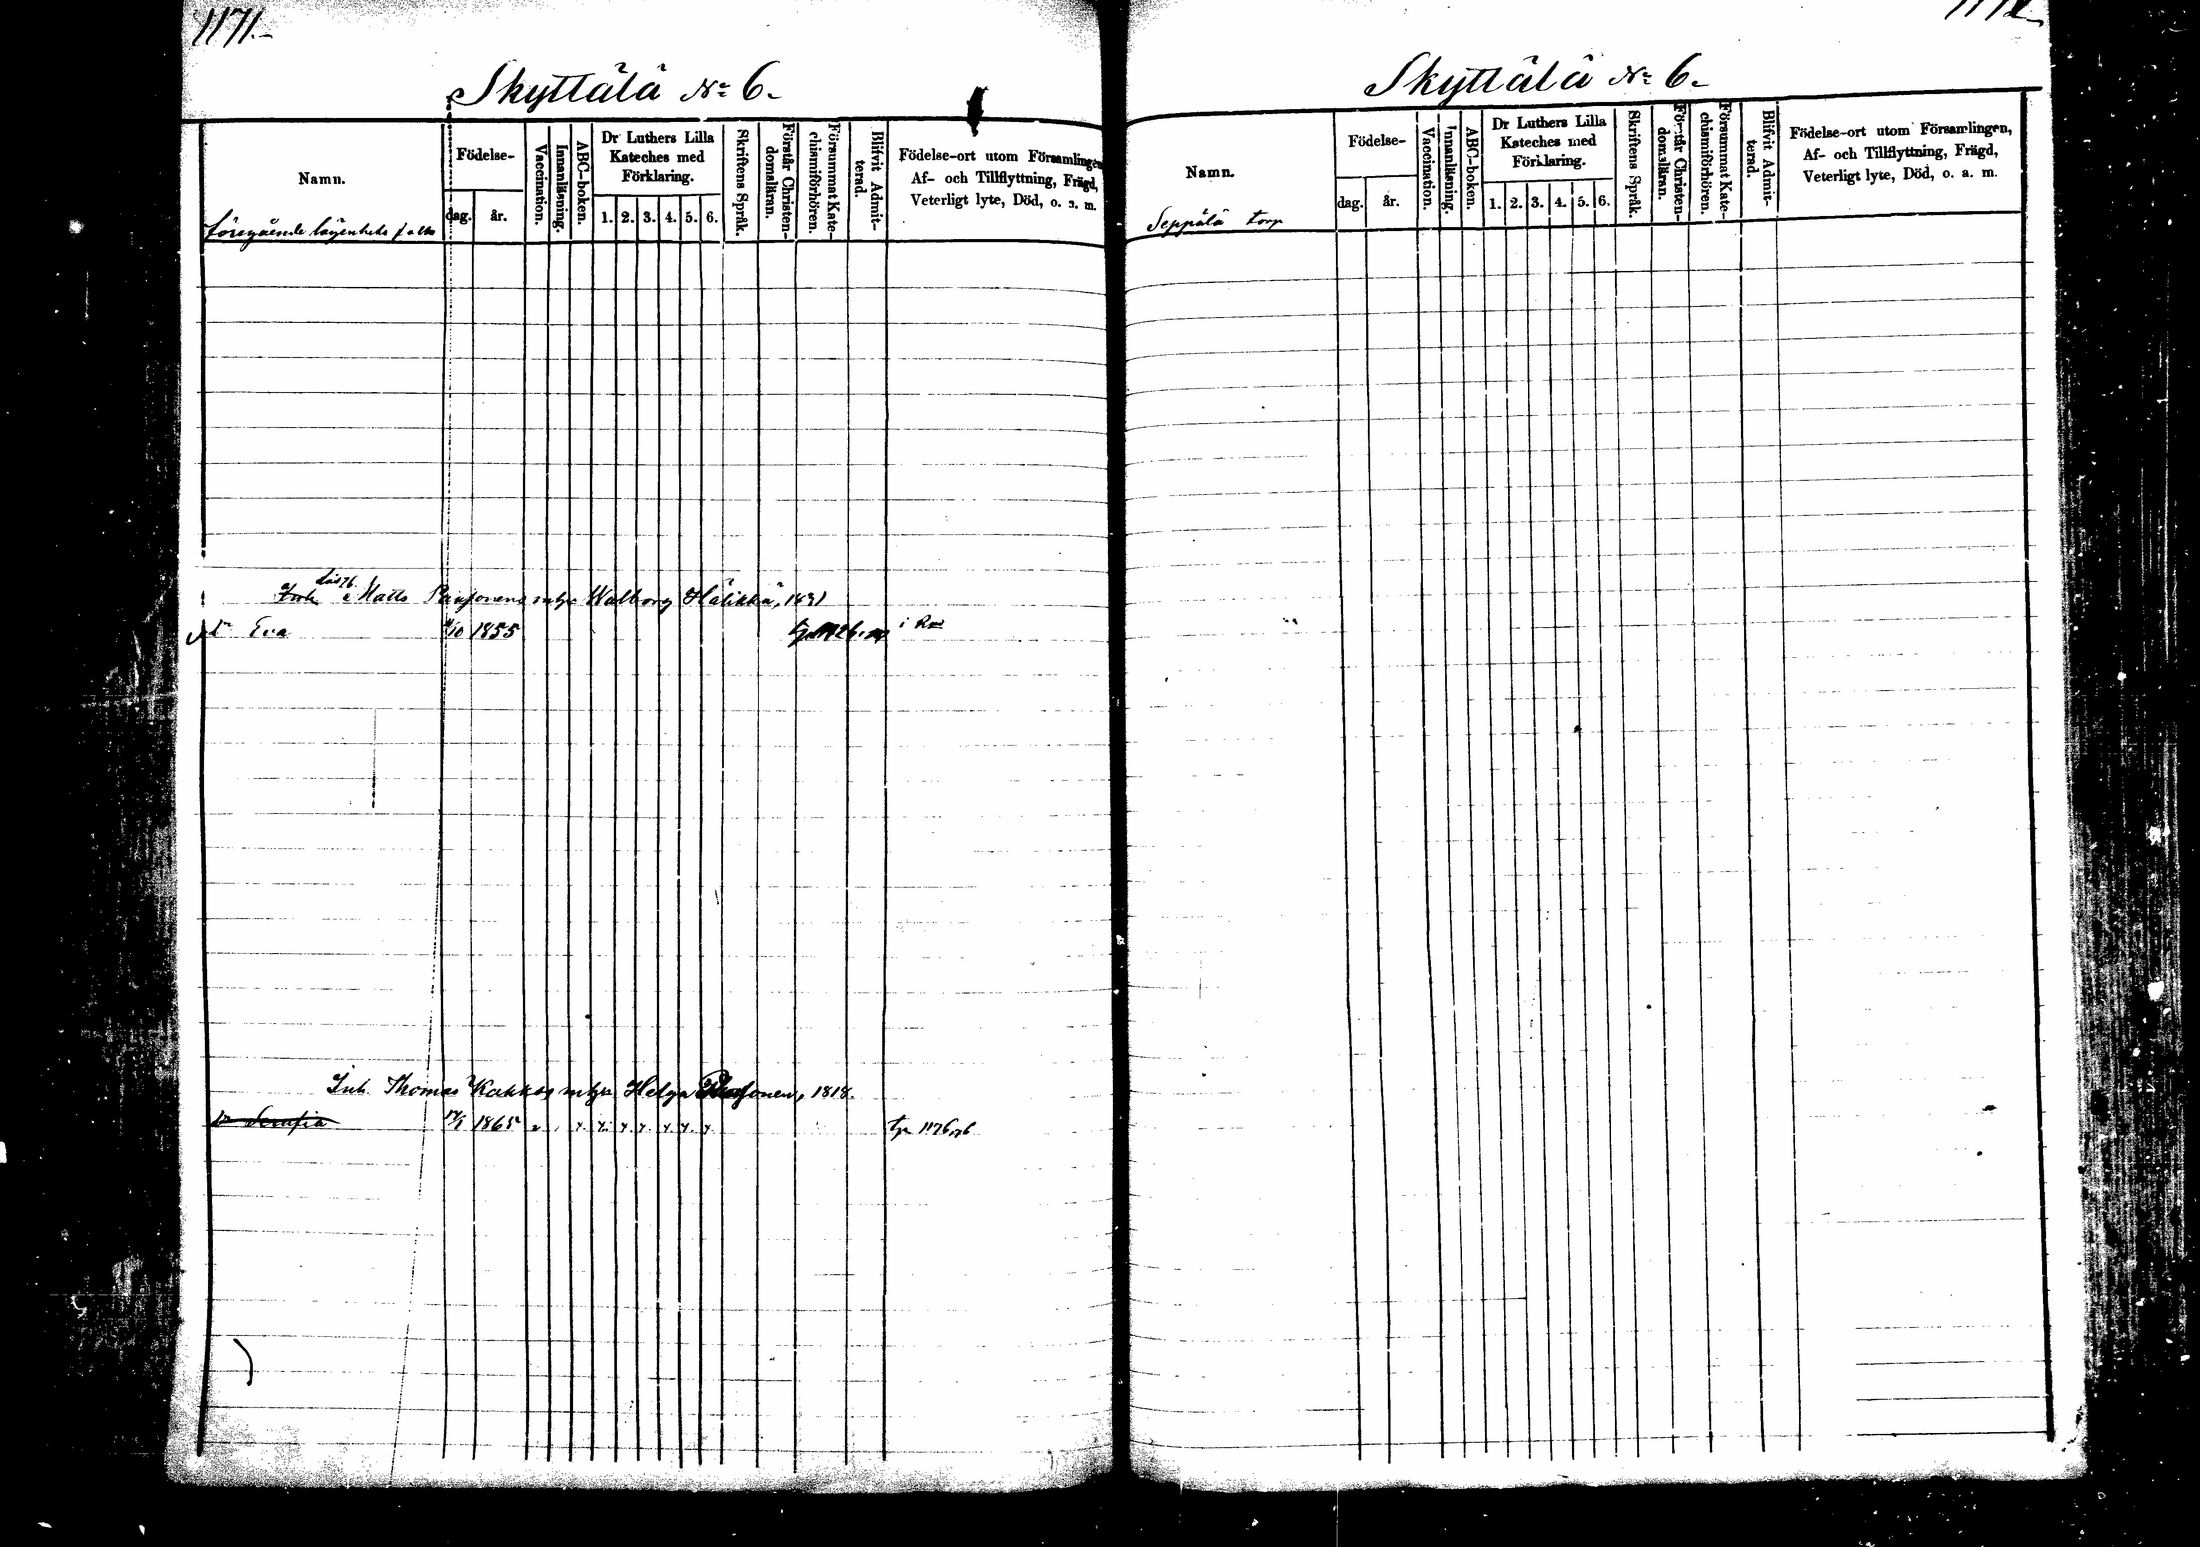 1171.
Skyttälä No 6.
Namn.
Födelse-
dag.
år.
Vaccination.
Innanläsning.
ABC-boken.
Dr Luthers Lilla
Kateches med
Förklaring.
1. 2. 3. 4. 5. 6.
Skriftens Språk.
Förstår Christen-
domsläran.
Försummat Kate-
chismiförhören.
Blifvit Admit-
terad.
Födelse-ort utom Församlingen,
Af- och Tillflyttning, Frägd,
Veterligt lyte, Död, o. a. m.
föregående lägenhets folk
Inh. Matts Paasonens mhje Walborg Hälikkä, 1831
dr Eva 1855
Inh. Thomas Kakkos mhje Helga Paasonen, 1818.
dr Serafia 1865 1176,76
Skyttälä No 6.
Namn.
Födelse-
dag.
år.
Vaccination.
Innanläsning.
ABC-boken.
Dr Luthers Lilla
Kateches med
Förklaring.
1. 2. 3. 4. 5. 6.
Skriftens Språk.
Förstår Christen-
domsläran.
Försummat Kate-
chismiförhören.
Blifvit Admit-
terad.
Födelse-ort utom Församlingen,
Af- och Tillflyttning, Frägd,
Veterligt lyte, Död, o. a. m.
Seppälä torp